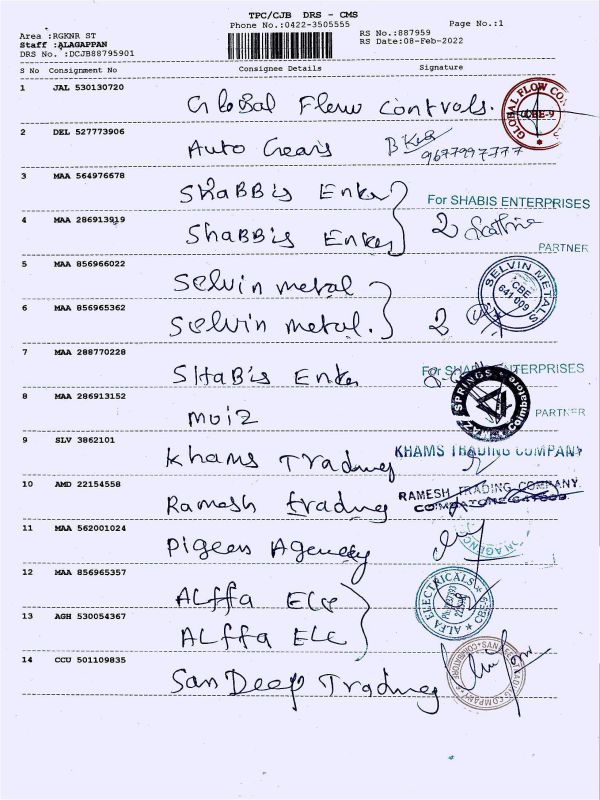 TPC/CJB DRS - CMS
Phone No.:0422-3505555 Page No.:1
Area :RGKNR ST RS No.:887959
Staff :ALAGAPPAN RS Date:08-Feb-2022
DRS No. :DCJB88795901
S No Consignment No Consignee Details Signature
1 JAL 530130720 Global Flow Controls. GLOBAL FLOW CON CBE-9
2 DEL 527773906 Auto Gears 9677997777
3 MAA 564976678 ShaBBis Enter For SHABIS ENTERPRISES
4 MAA 286913919 ShaBBis Enter 2 PARTNER
5 MAA 856966022 Selvin metal SELVIN METALS CBE 641 009
6 MAA 856965362 Selvin metal. 2
7 MAA 288770228 SHaBis Enter For SHABIS ENTERPRISES
8 MAA 286913152 moiz SPRINGS Coimbatore PARTNER
9 SLV 3862101 Khams Trading KHAMS TRADING COMPANY
10 AMD 22154558 Ramesh trading RAMESH TRADING COMPANY
11 MAA 562001024 Pigeon Agency
12 MAA 856965357 ALffa Ele ALFA ELECTRICALS CBE-9
13 AGH 530054367 ALffa ELE
14 CCU 501109835 SanDeep Trading COMPANY COIMBATORE